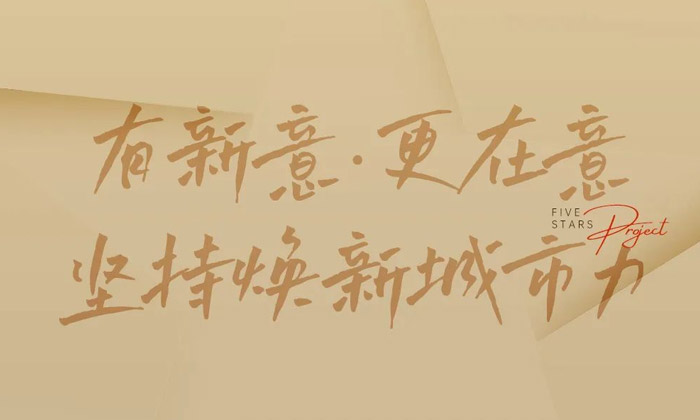 有新意·更在意
FIVE
STARS Project
坚持焕新城市力